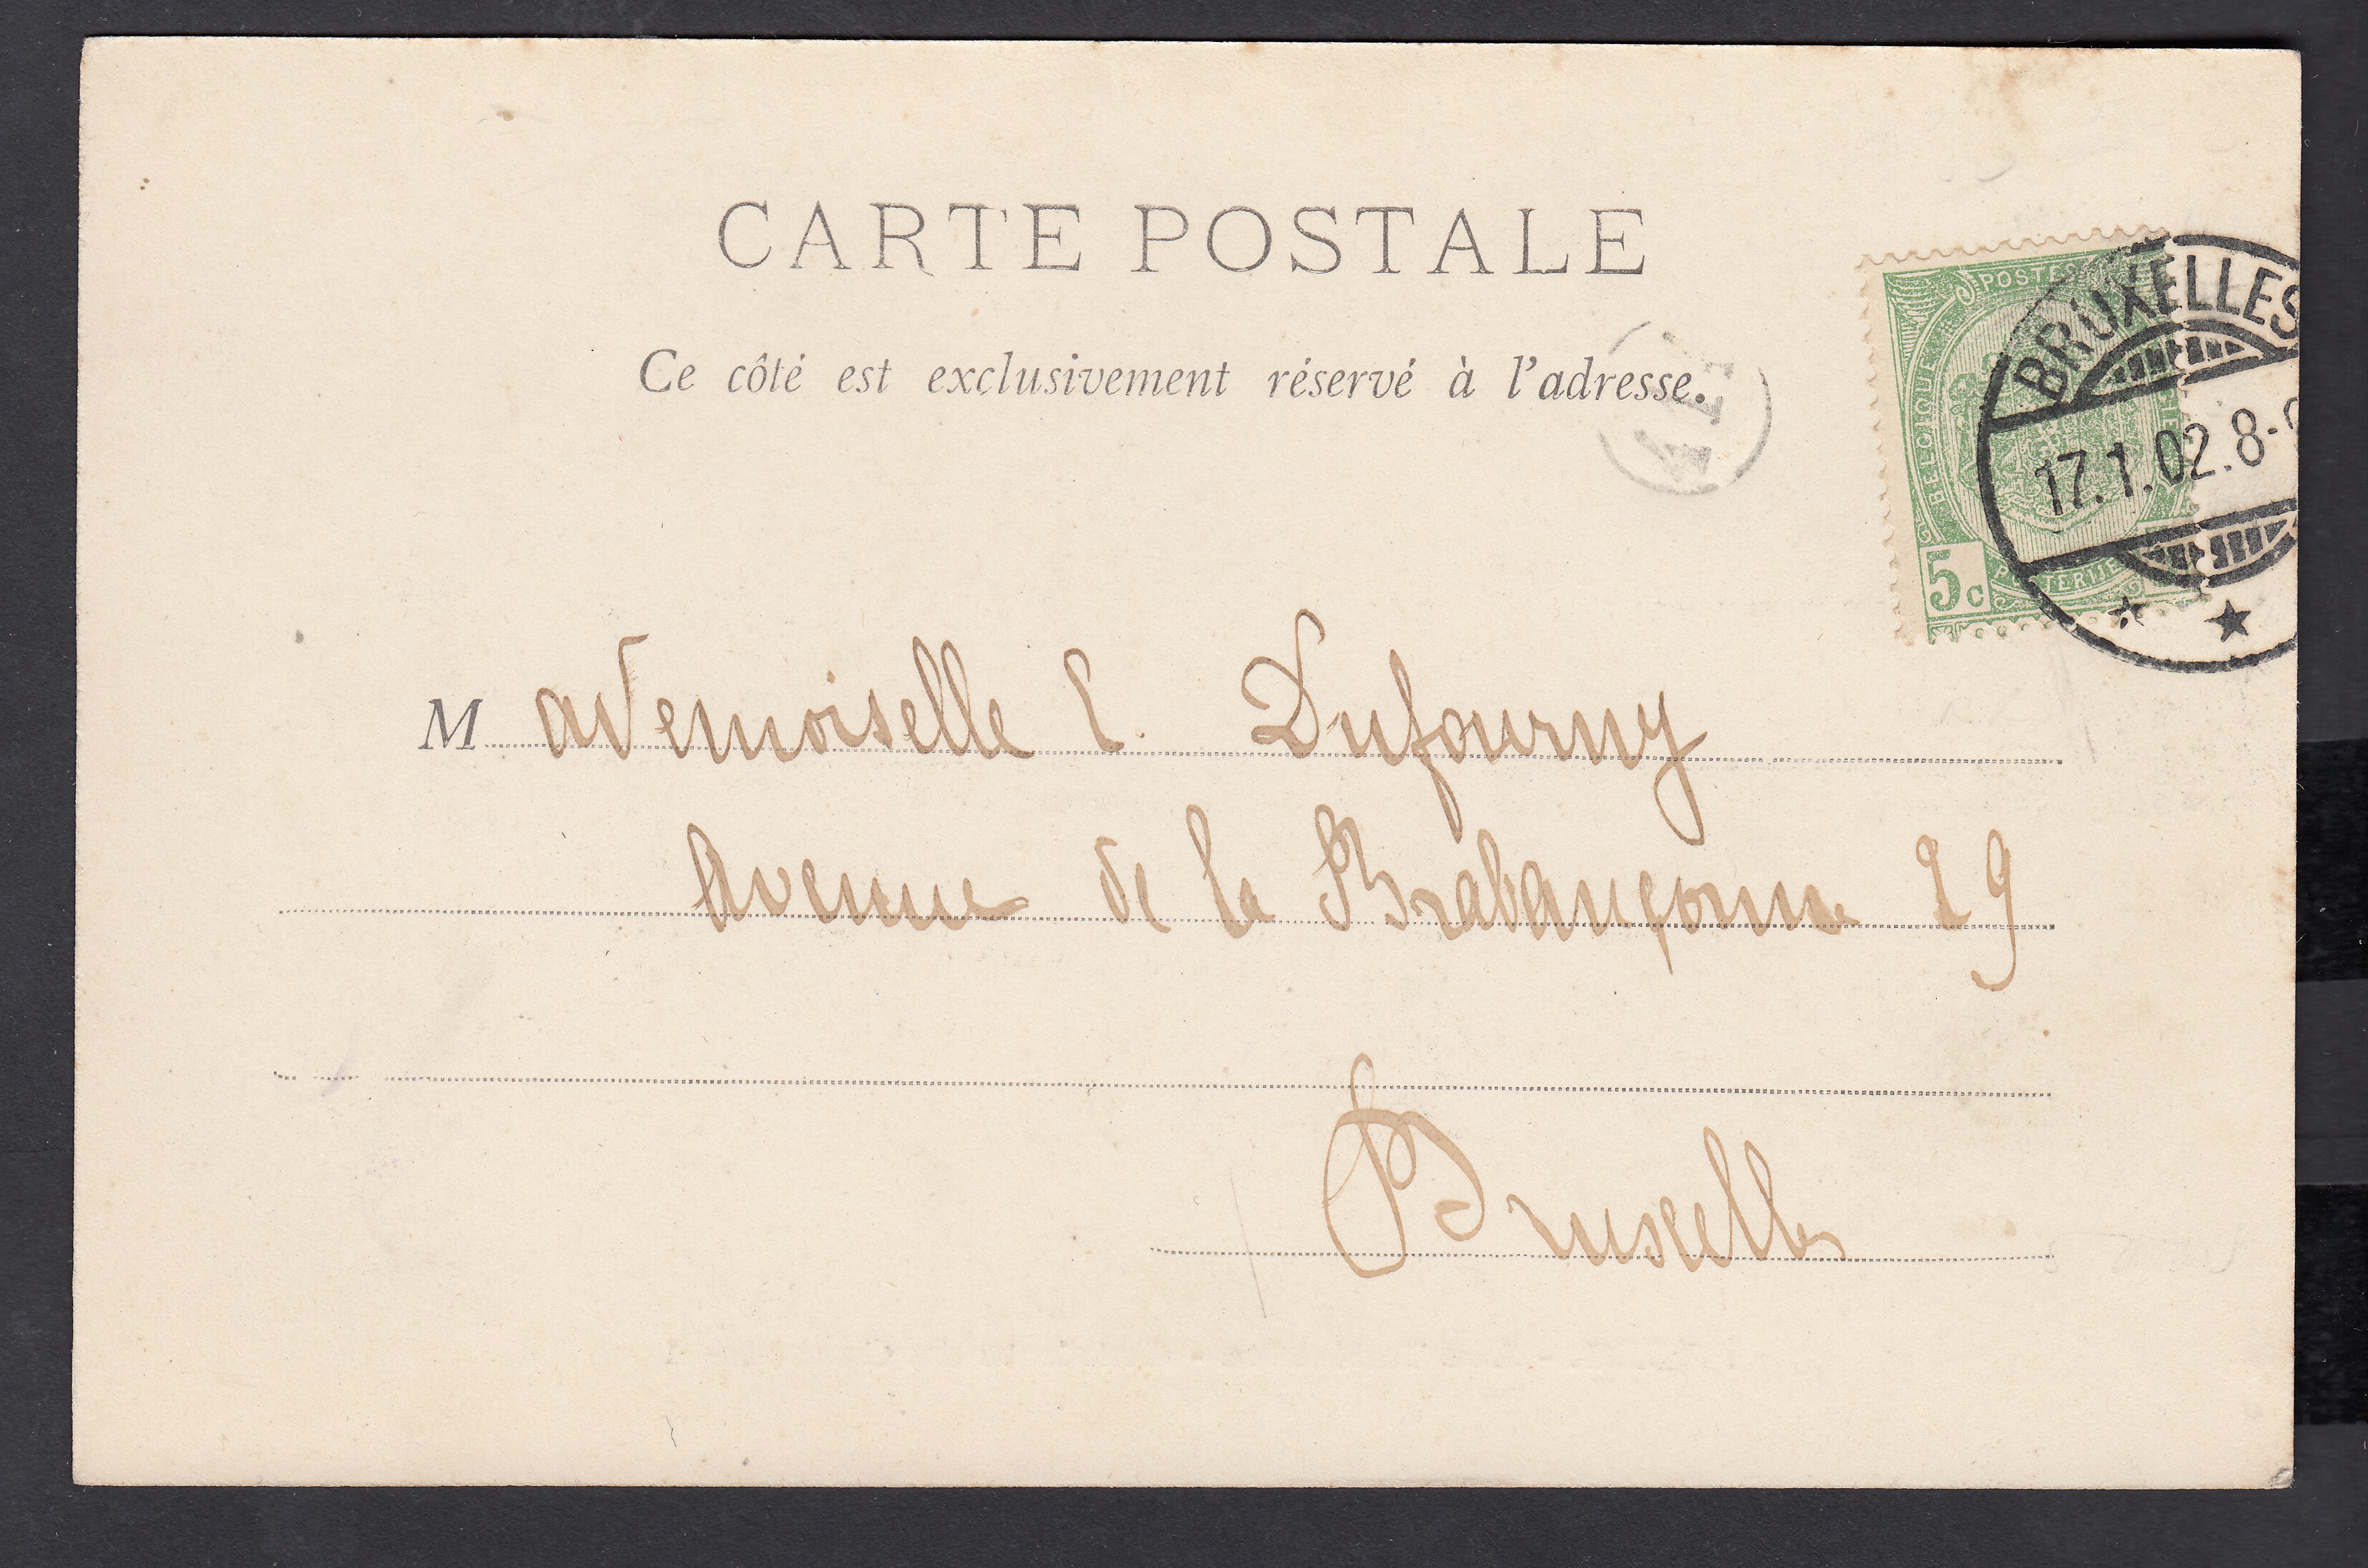 CARTE POSTALE
Ce côté est exclusivement réservé à l'adresse.
POSTES
BELGIQUE
5c
POSTERIJEN
BRUXELLES
17.1.02.8-
Mademoiselle E. Dufourny
Avenue de la Brabançonne 29
Bruxelles